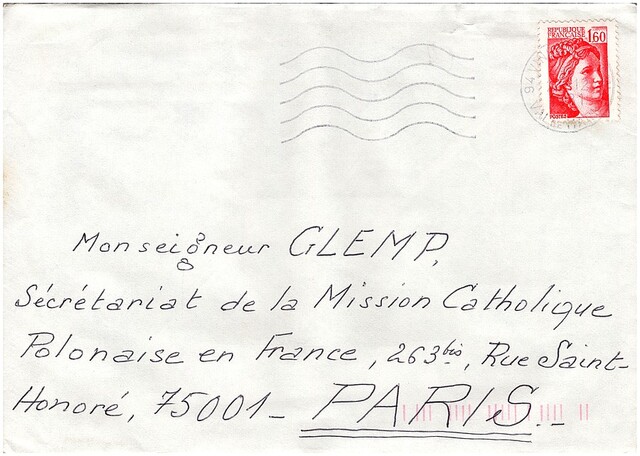 REPUBLIQUE
FRANÇAISE
1,60
POSTES
94
Monseigneur GLEMP,
Sécrétariat de la Mission Catholique
Polonaise en France, 263bis, Rue Saint-
Honoré, 75001- PARIS.-